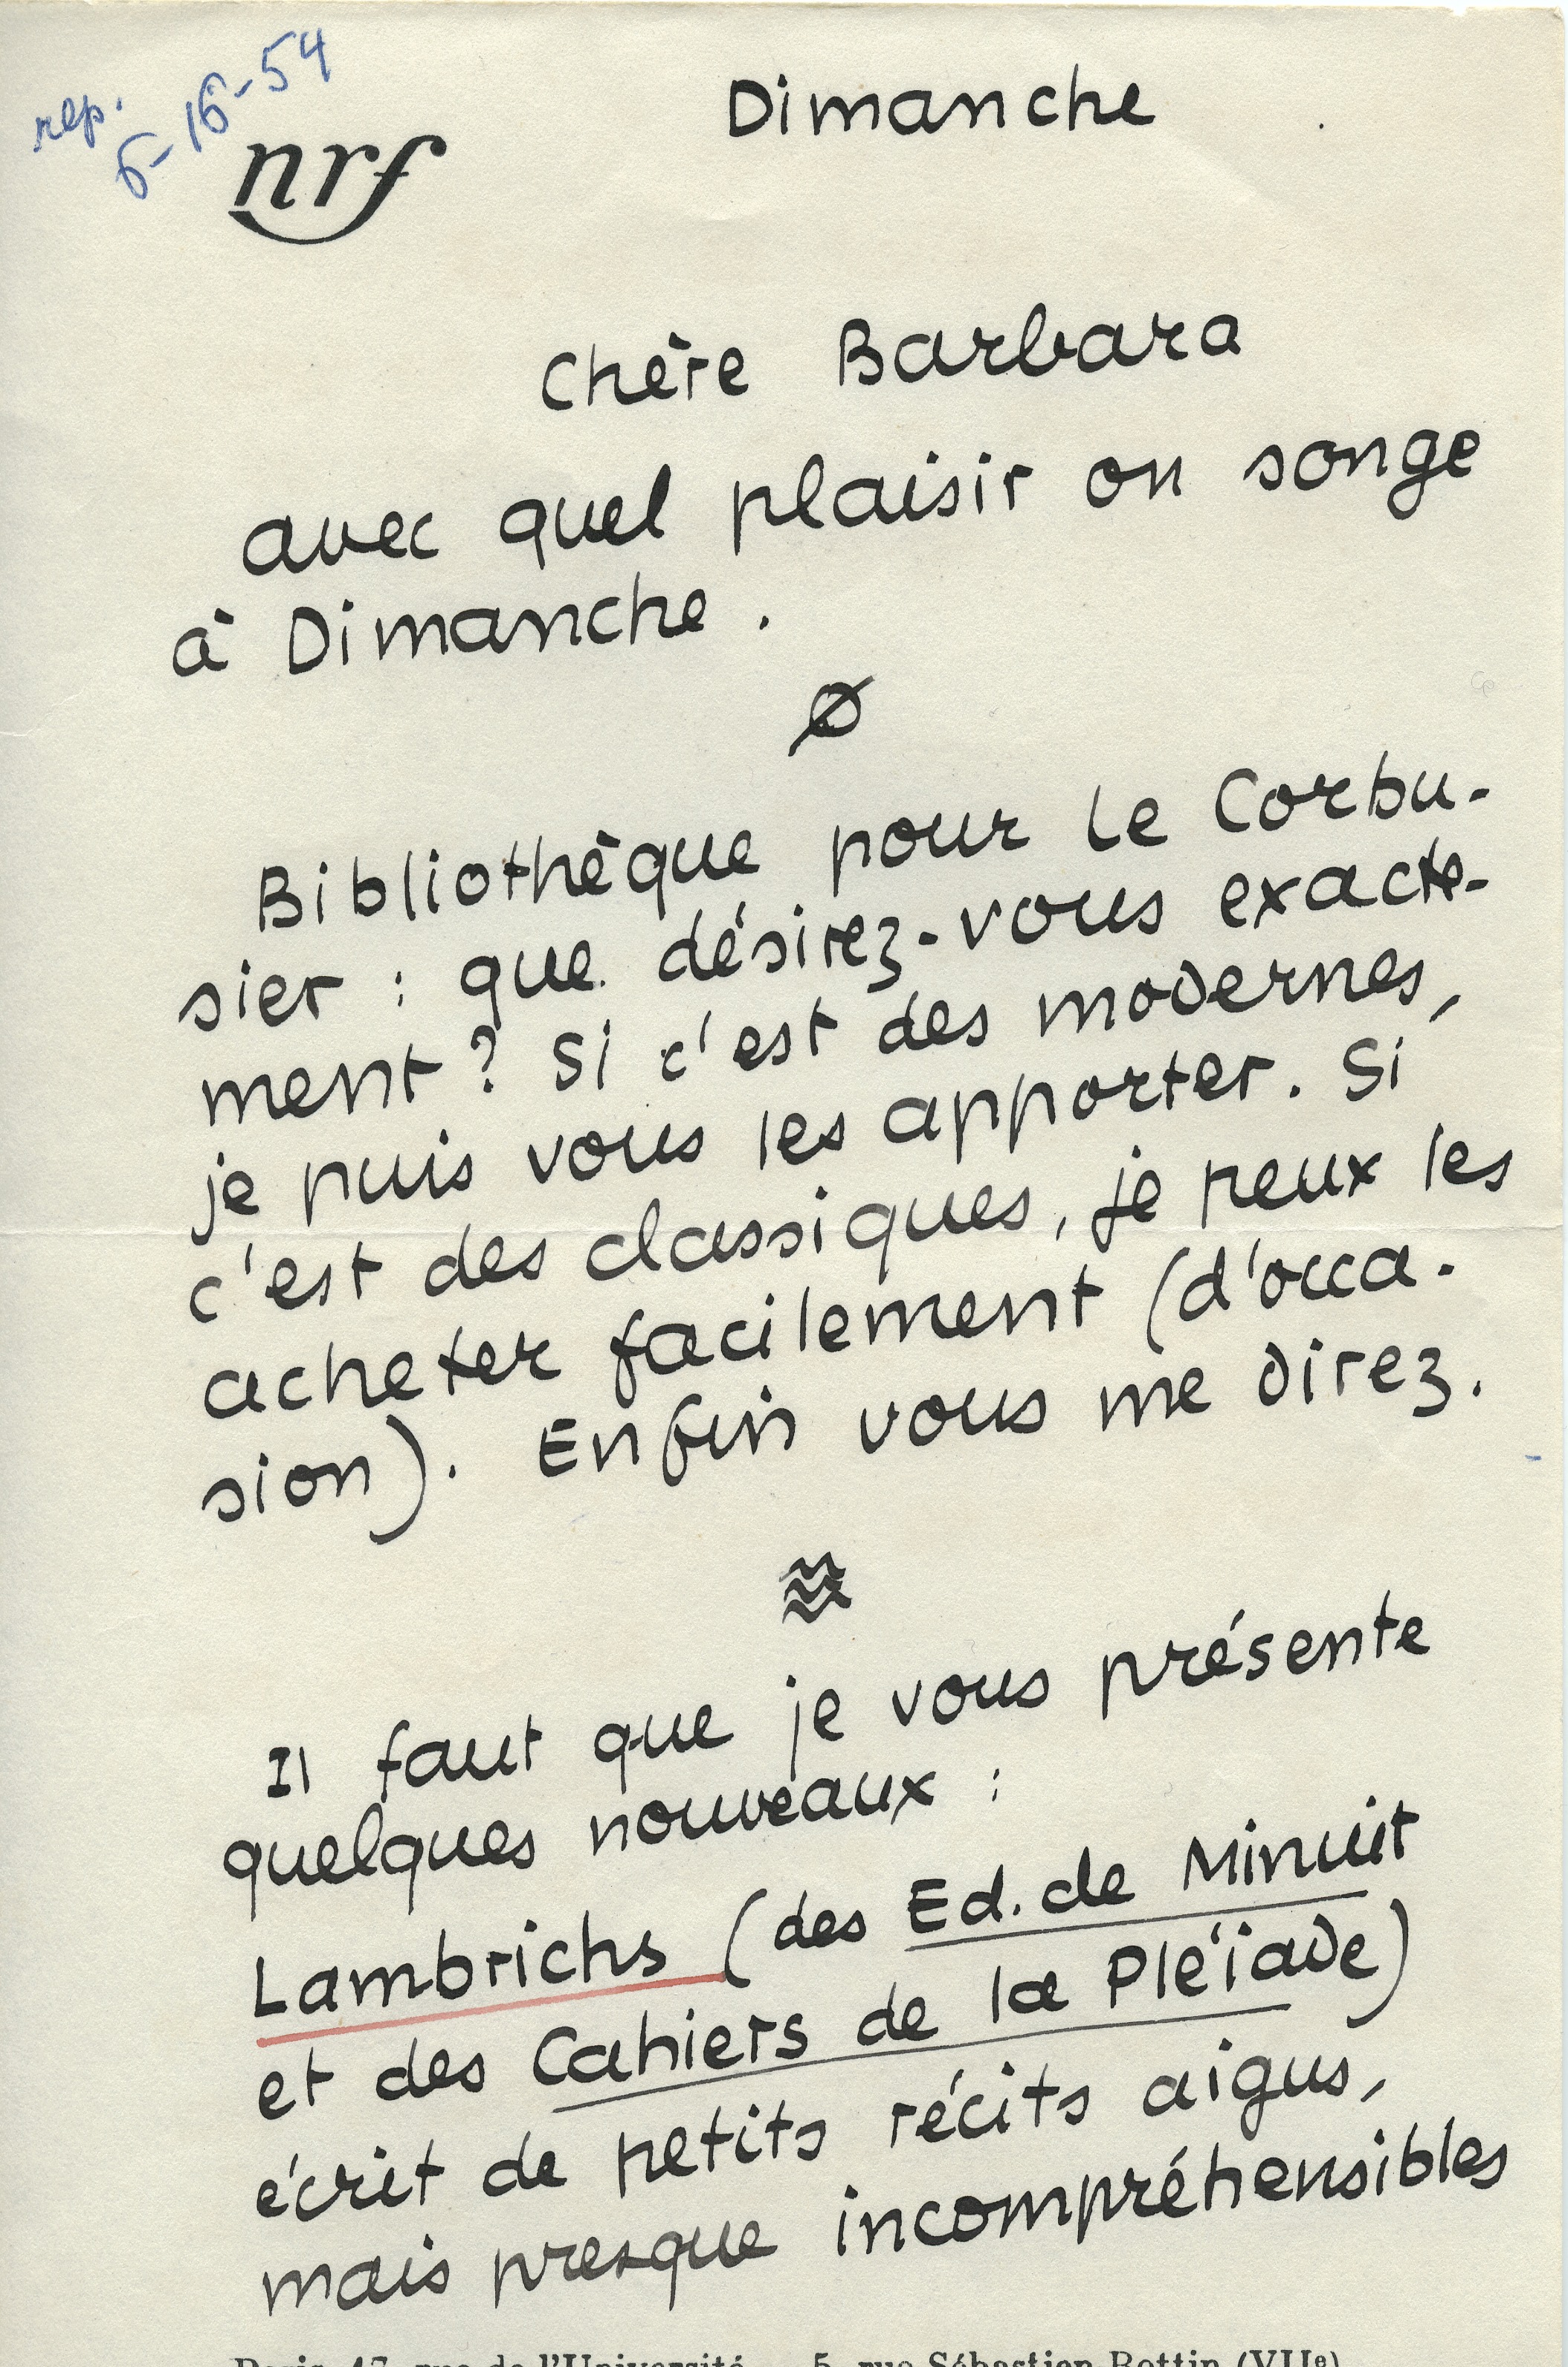 rep.
6-16-54
nrf
Dimanche
Chère Barbara
avec quel plaisir on songe
à Dimanche.
Bibliothèque pour le Corbu-
sier : que désirez-vous exacte-
ment ? Si c'est des modernes,
je puis vous les apporter. Si
c'est des classiques, je peux les
acheter facilement (d'occa-
sion). Enfin vous me direz.
Il faut que je vous présente
quelques nouveaux :
Lambrichs (des Ed. de Minuit
et des Cahiers de la Pléiade)
écrit de petits récits aigus,
mais presque incompréhensibles
Paris, 17, rue de l'Université — 5, rue Sébastien-Bottin (VIIe)